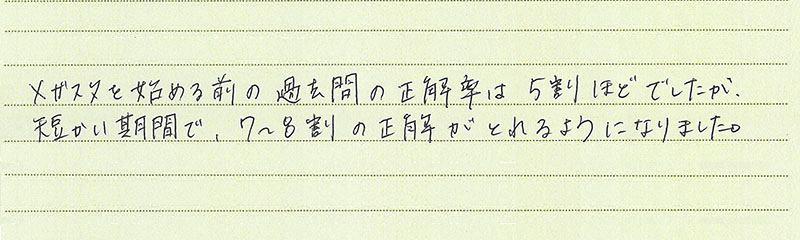 メガスタを始める前の過去問の正解率は5割ほどでしたが、
短かい期間で、7〜8割の正解がとれるようになりました。